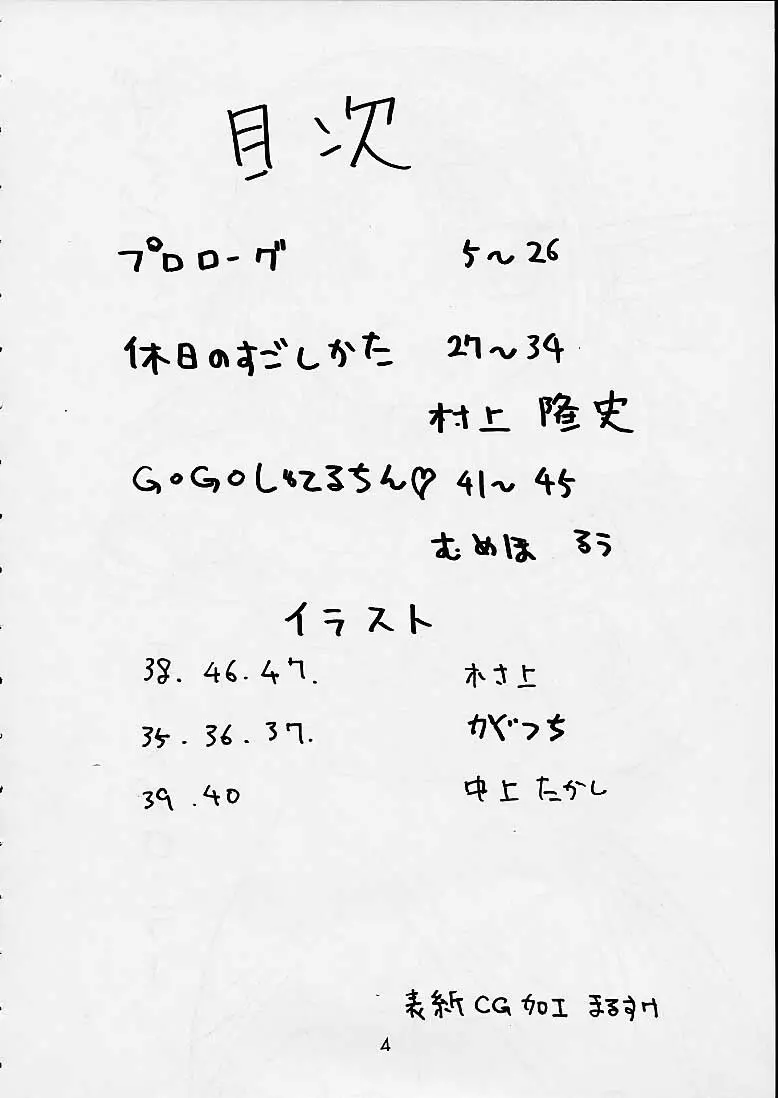 目次
プロローグ 5～26
休日のすごしかた 27～34
村上 隆史
GoGoしゅてるちん♡ 41～45
むめほ るう
イラスト
38. 46. 47. 木さ上
35. 36. 37. かぐつち
39. 40 中上たかし
表紙CG加工 まるすけ
4